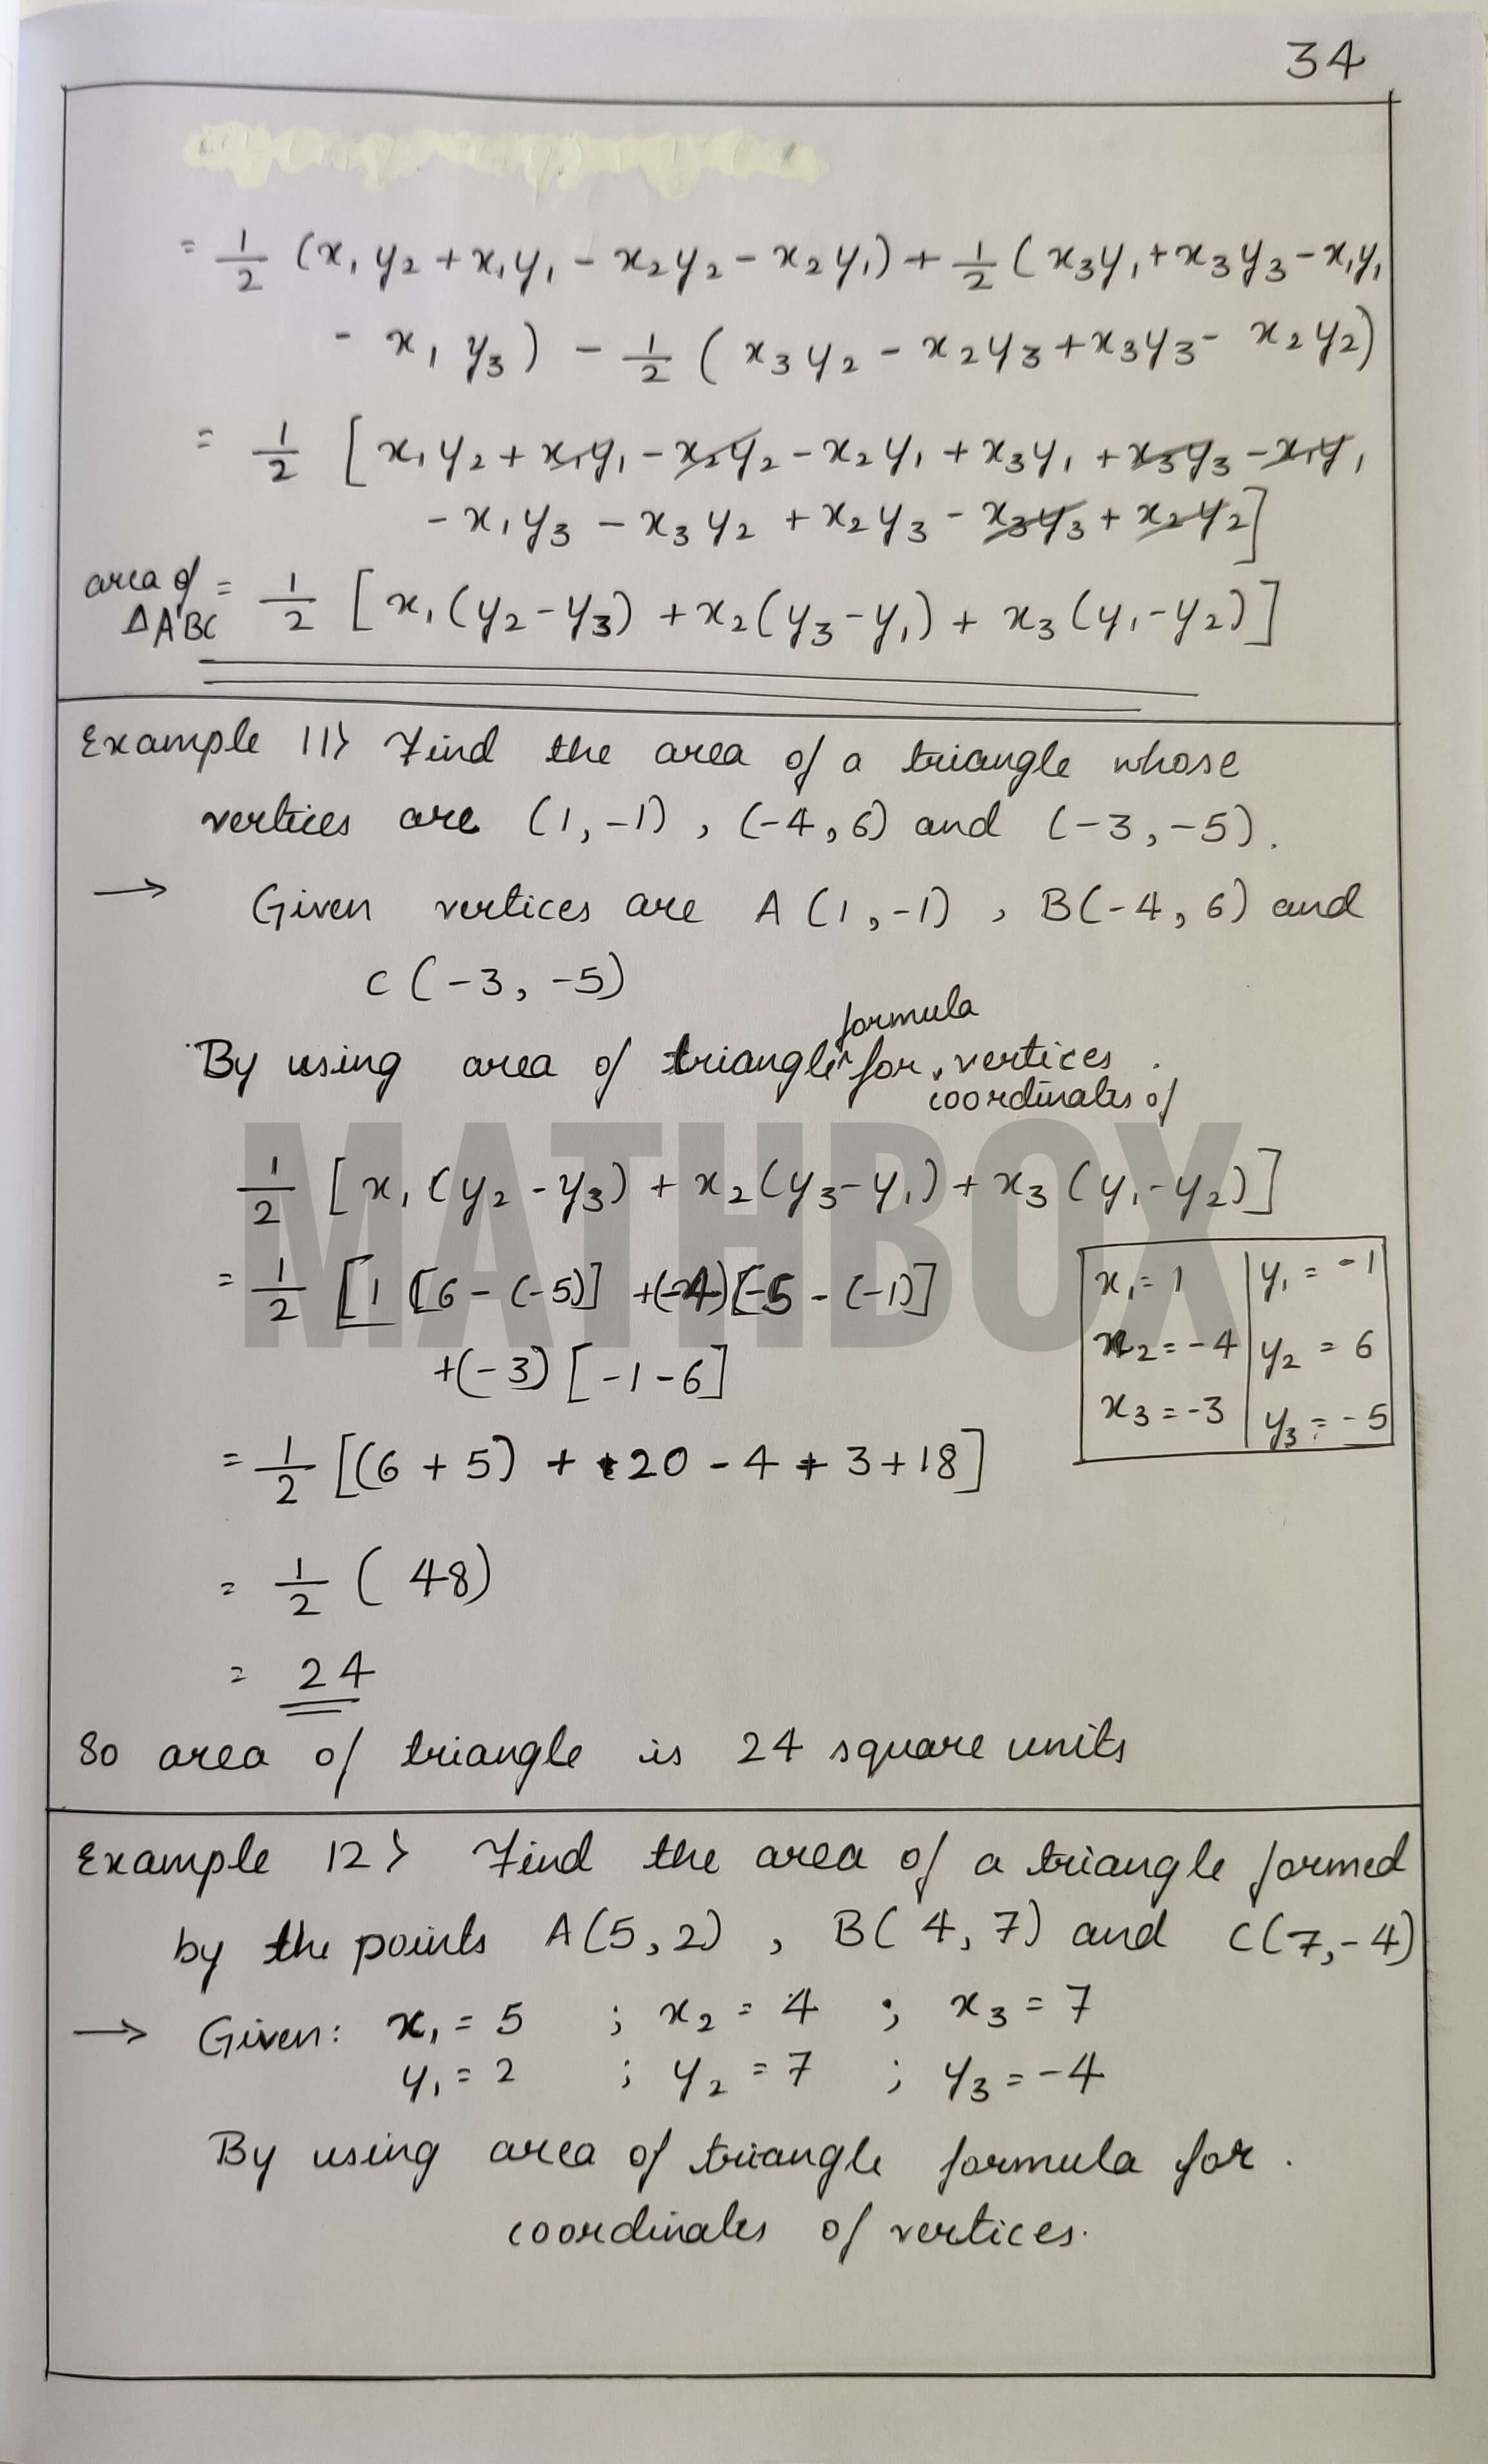 34
= 1/2 (x₁y₂ + x₁y₁ - x₂y₂ - x₂y₁) + 1/2 (x₃y₁ + x₃y₃ - x₁y₁
- x₁y₃) - 1/2 (x₃y₂ - x₂y₃ + x₃y₃ - x₂y₂)
= 1/2 [x₁y₂ + x₁y₁ - x₂y₂ - x₂y₁ + x₃y₁ + x₃y₃ - x₁y₁
- x₁y₃ - x₃y₂ + x₂y₃ - x₃y₃ + x₂y₂]
area of ΔABC = 1/2 [x₁(y₂-y₃) + x₂(y₃-y₁) + x₃(y₁-y₂)]
Example 11> Find the area of a triangle whose
vertices are (1,-1), (-4,6) and (-3,-5).
→ Given vertices are A(1,-1), B(-4,6) and
C(-3,-5)
By using area of triangle formula for coordinates of vertices.
1/2 [x₁(y₂-y₃) + x₂(y₃-y₁) + x₃(y₁-y₂)]
= 1/2 [1 [6-(-5)] + (-4)[-5-(-1)]
+(-3)[-1-6]
x₁ = 1 y₁ = -1
x₂ = -4 y₂ = 6
x₃ = -3 y₃ = -5
= 1/2 [(6+5) + 20 - 4 + 3 + 18]
= 1/2 (48)
= 24
So area of triangle is 24 square units
Example 12> Find the area of a triangle formed
by the points A(5,2), B(4,7) and C(7,-4)
→ Given: x₁ = 5 ; x₂ = 4 ; x₃ = 7
y₁ = 2 ; y₂ = 7 ; y₃ = -4
By using area of triangle formula for.
coordinates of vertices.
MATHBOX